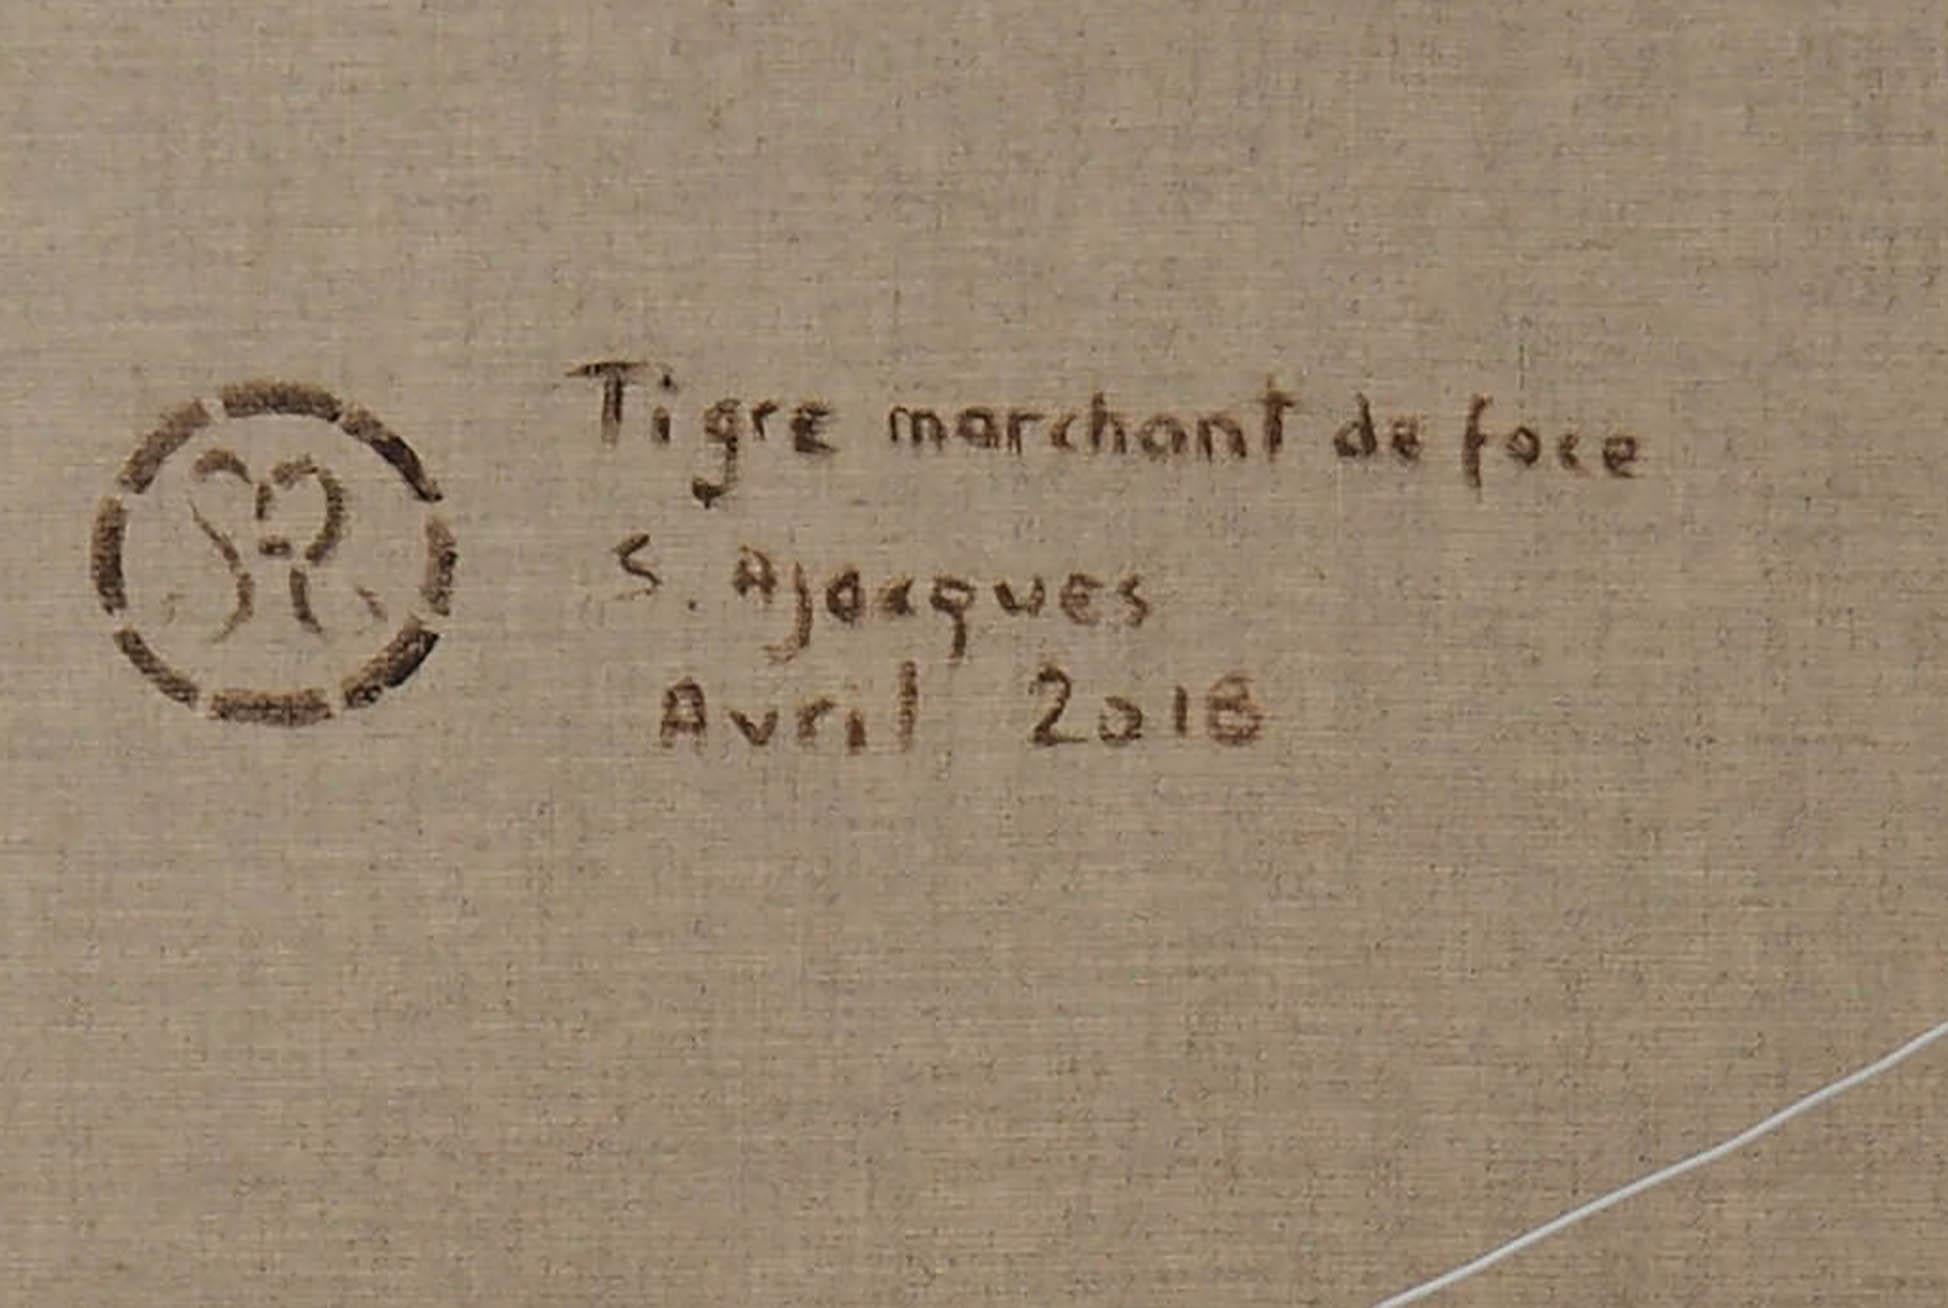 Tigre marchant de face
S. Ajacques
Avril 2018